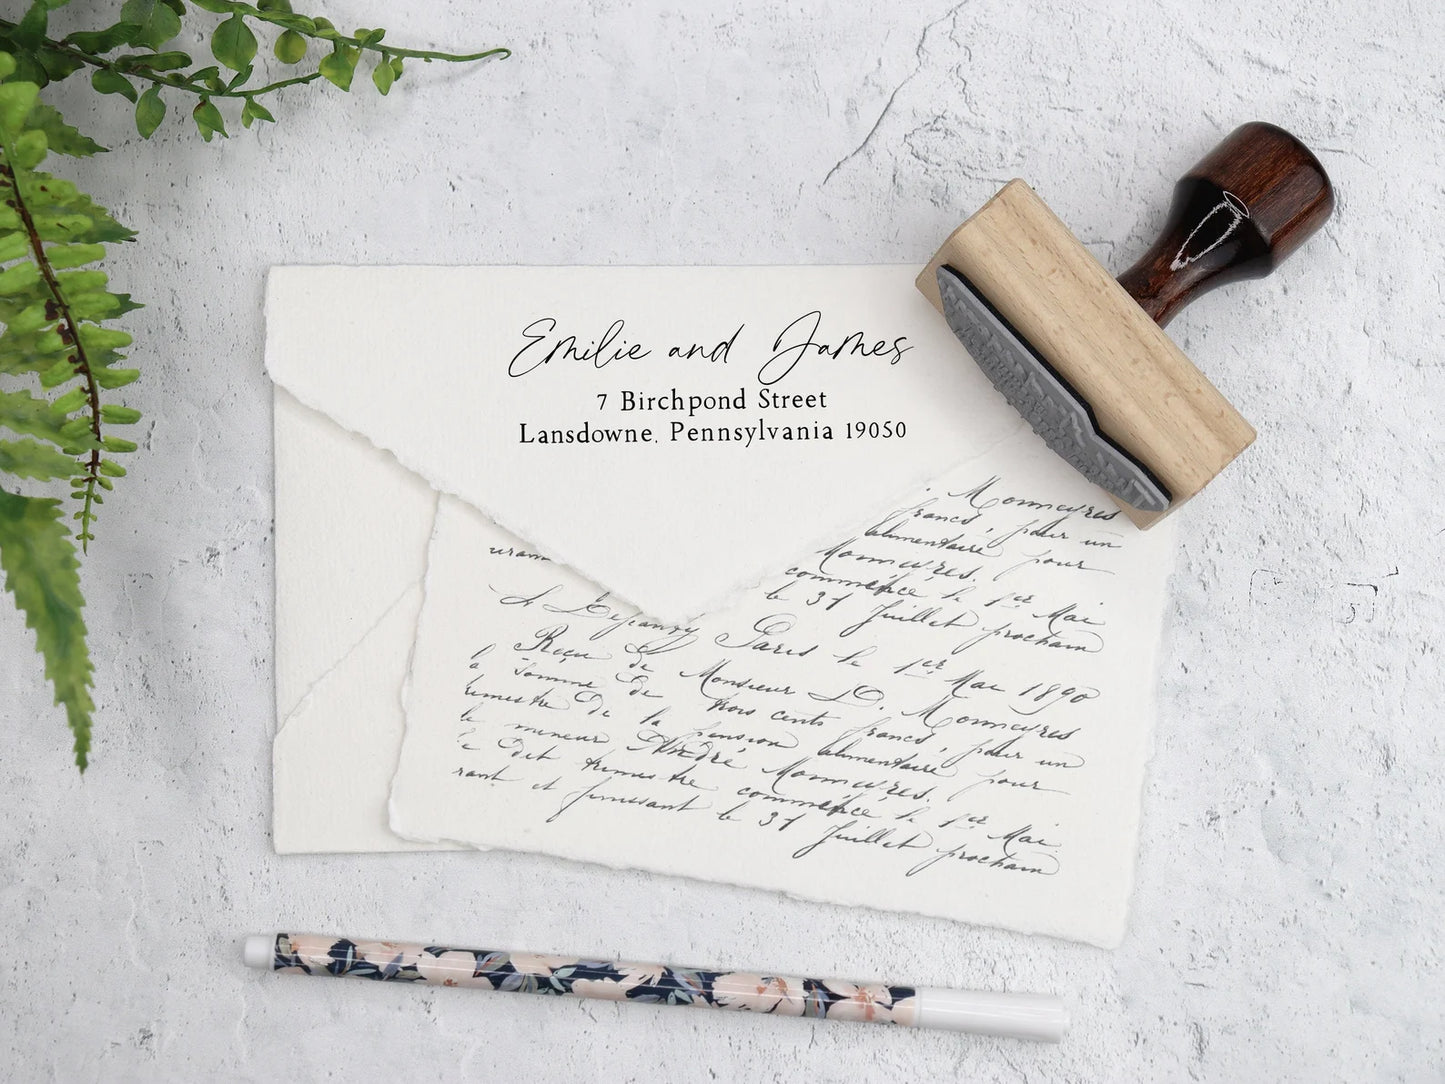 Emilie and James
7 Birchpond Street
Lansdowne, Pennsylvania 19050
. Monneyres
francs, pour un
alimentaire pour
Monneyres.
commence le 1er Mai
le 31 Juillet prochain
Paris le 1er Mai 1890
Reçu de Monsieur D. Monneyres
a somme de trois cents francs, pour un
trimestre de la pension alimentaire pour
le mineur André Monneyres.
e dit trimestre commence le 1er Mai
rant et finissant le 31 Juillet prochain